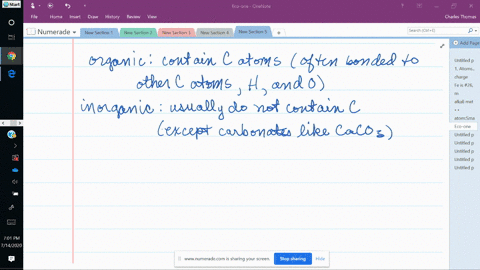 Start
Eco-one - OneNote
Charles Thomas
File Home Insert Draw History Review View Help Class Notebook
Numerade
New Section 1 New Section 2 New Section 3 New Section 4 New Section 5 +
Search (Ctrl+E)
Add Page
organic: contain C atoms (often bonded to
other C atoms, H, and O)
inorganic: usually do not contain C
(except carbonates like CaCO3)
Untitled p
1. Atomic..
charge
alkali met
Eco-one
Untitled p
Untitled p
Untitled p
Untitled p
Untitled p
Untitled p
Untitled p
www.numerade.com is sharing your screen. Stop sharing Hide
7:01 PM
7/14/2020